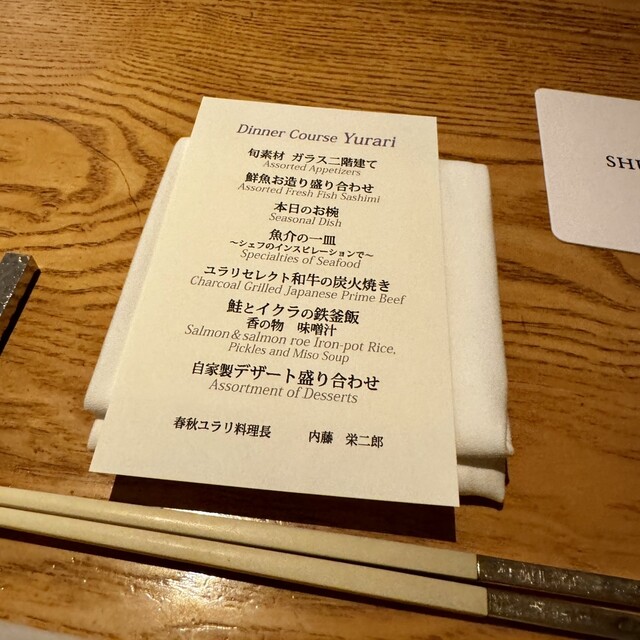 Dinner Course Yurari
旬素材 ガラス二階建て
Assorted Appetizers
鮮魚お造り盛り合わせ
Assorted Fresh Fish Sashimi
本日のお椀
Seasonal Dish
魚介の一皿
～シェフのインスピレーションで～
Specialties of Seafood
ユラリセレクト和牛の炭火焼き
Charcoal Grilled Japanese Prime Beef
鮭とイクラの鉄釜飯
香の物 味噌汁
Salmon & salmon roe Iron-pot Rice,
Pickles and Miso Soup
自家製デザート盛り合わせ
Assortment of Desserts
春秋ユラリ料理長 内藤 栄二郎